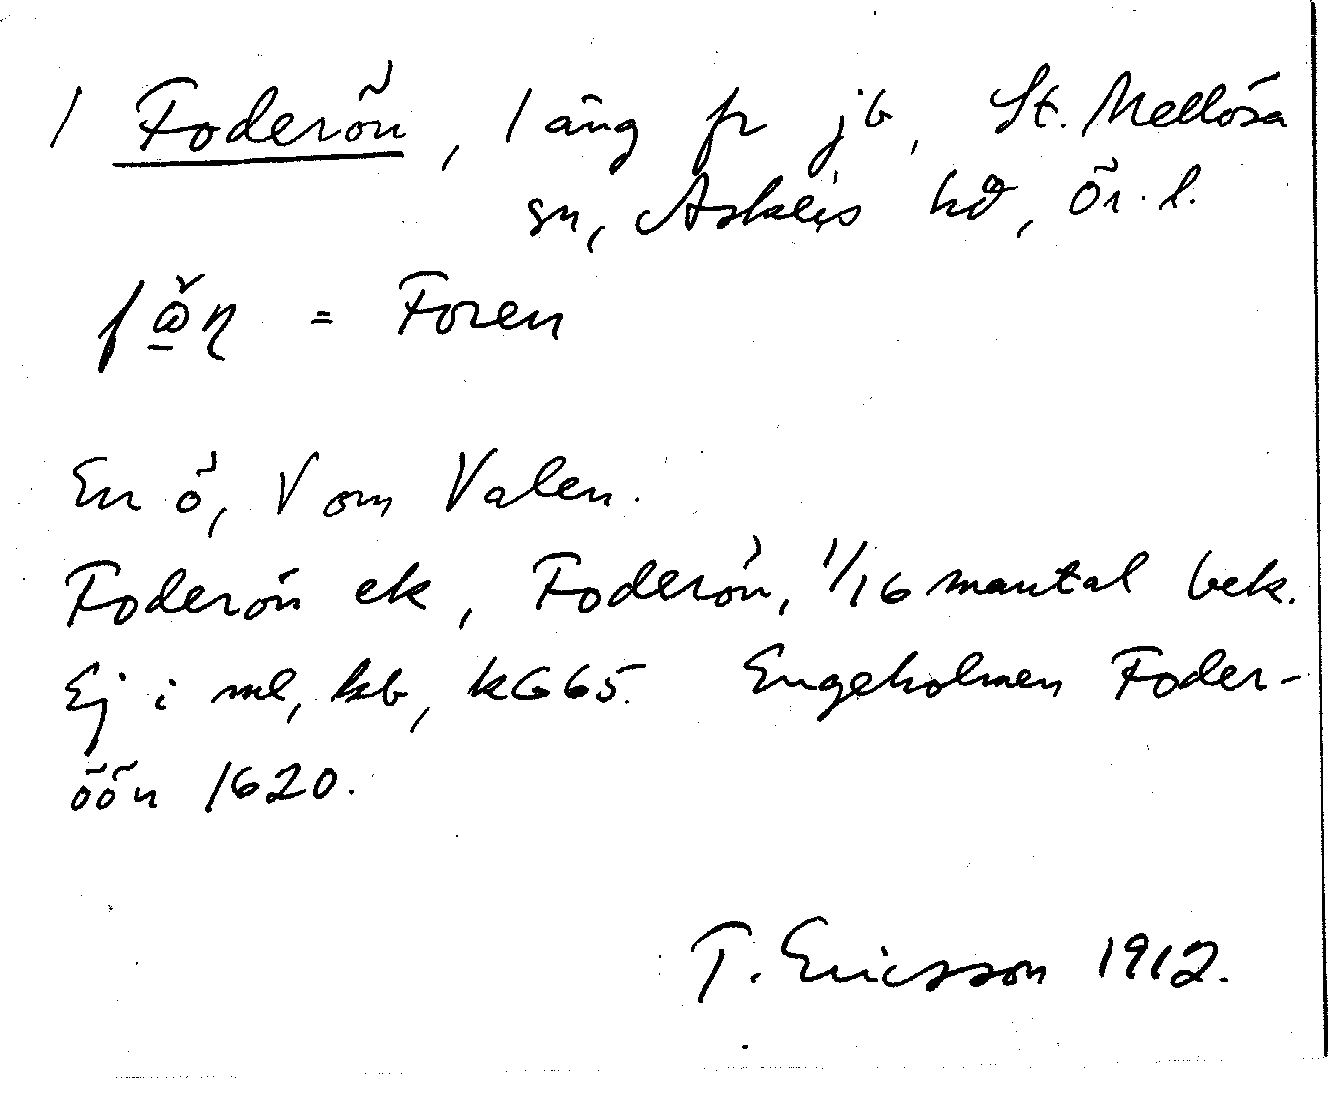 1 Foderön, 1 äng fr jb, St. Mellösa
sn, Askers hd, Ör. l.
= Foren
En ö, V om Valen.
Foderön ek, Foderön, 1/16 mantal bek.
Ej i ml, kb, KG65. Engeholmen Foder-
öön 1620.
T. Ericsson 1912.